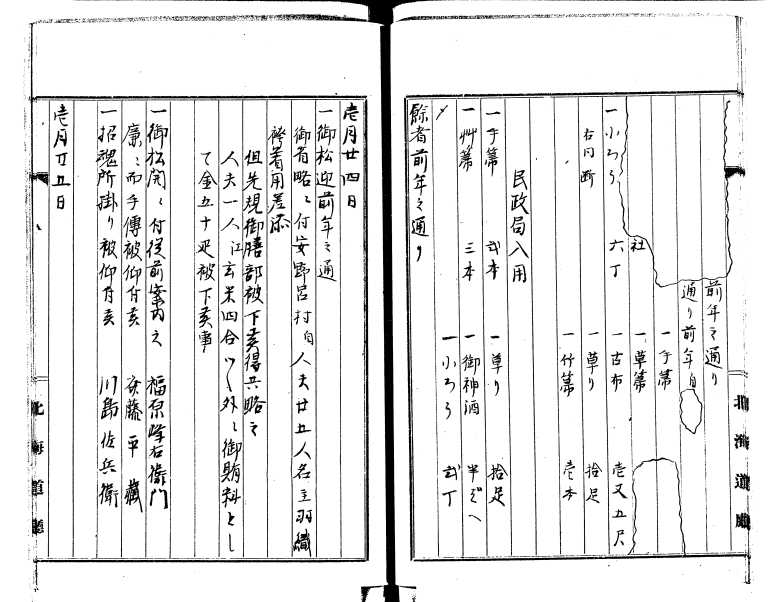 前年之通り
通り前年自
一手箒
一草箒
社
一小ろう　六丁　一古布　壱丈五尺
右同断　一草り　拾足
一竹箒　壱本
民政局入用
一手箒　弐本　一草り　拾足
一艸箒　三本　一御神酒　半だへ
一小ろう　弐丁
餘者前年之通り
壱月廿四日
一御松迎前年之通
御省略ニ付安野呂村自人夫廿五人名主羽織
袴着用差添
但先規御膳部被下候得共略之
人夫一人江玄米四合ツヽ外ニ御賄料とし
て金五十疋被下候事
一御松開ニ付従前案内之　福原峰右衛門
廉ニ而手傳被仰付候　安藤平蔵
一招魂所掛り被仰付候　川島佐兵衛
壱月廿五日
北海道廳
北海道廳